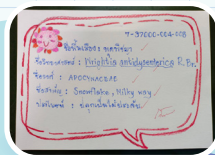 7-37000-004-008
ชื่อพื้นเมือง : พุดพิชญา
ชื่อวิทยาศาสตร์ : Wrightia antidysenterica R. Br.
ชื่อวงศ์ : APOCYNACEAE
ชื่อสามัญ : Snowflake, Milky way
ประโยชน์ : ปลูกเป็นไม้ประดับ